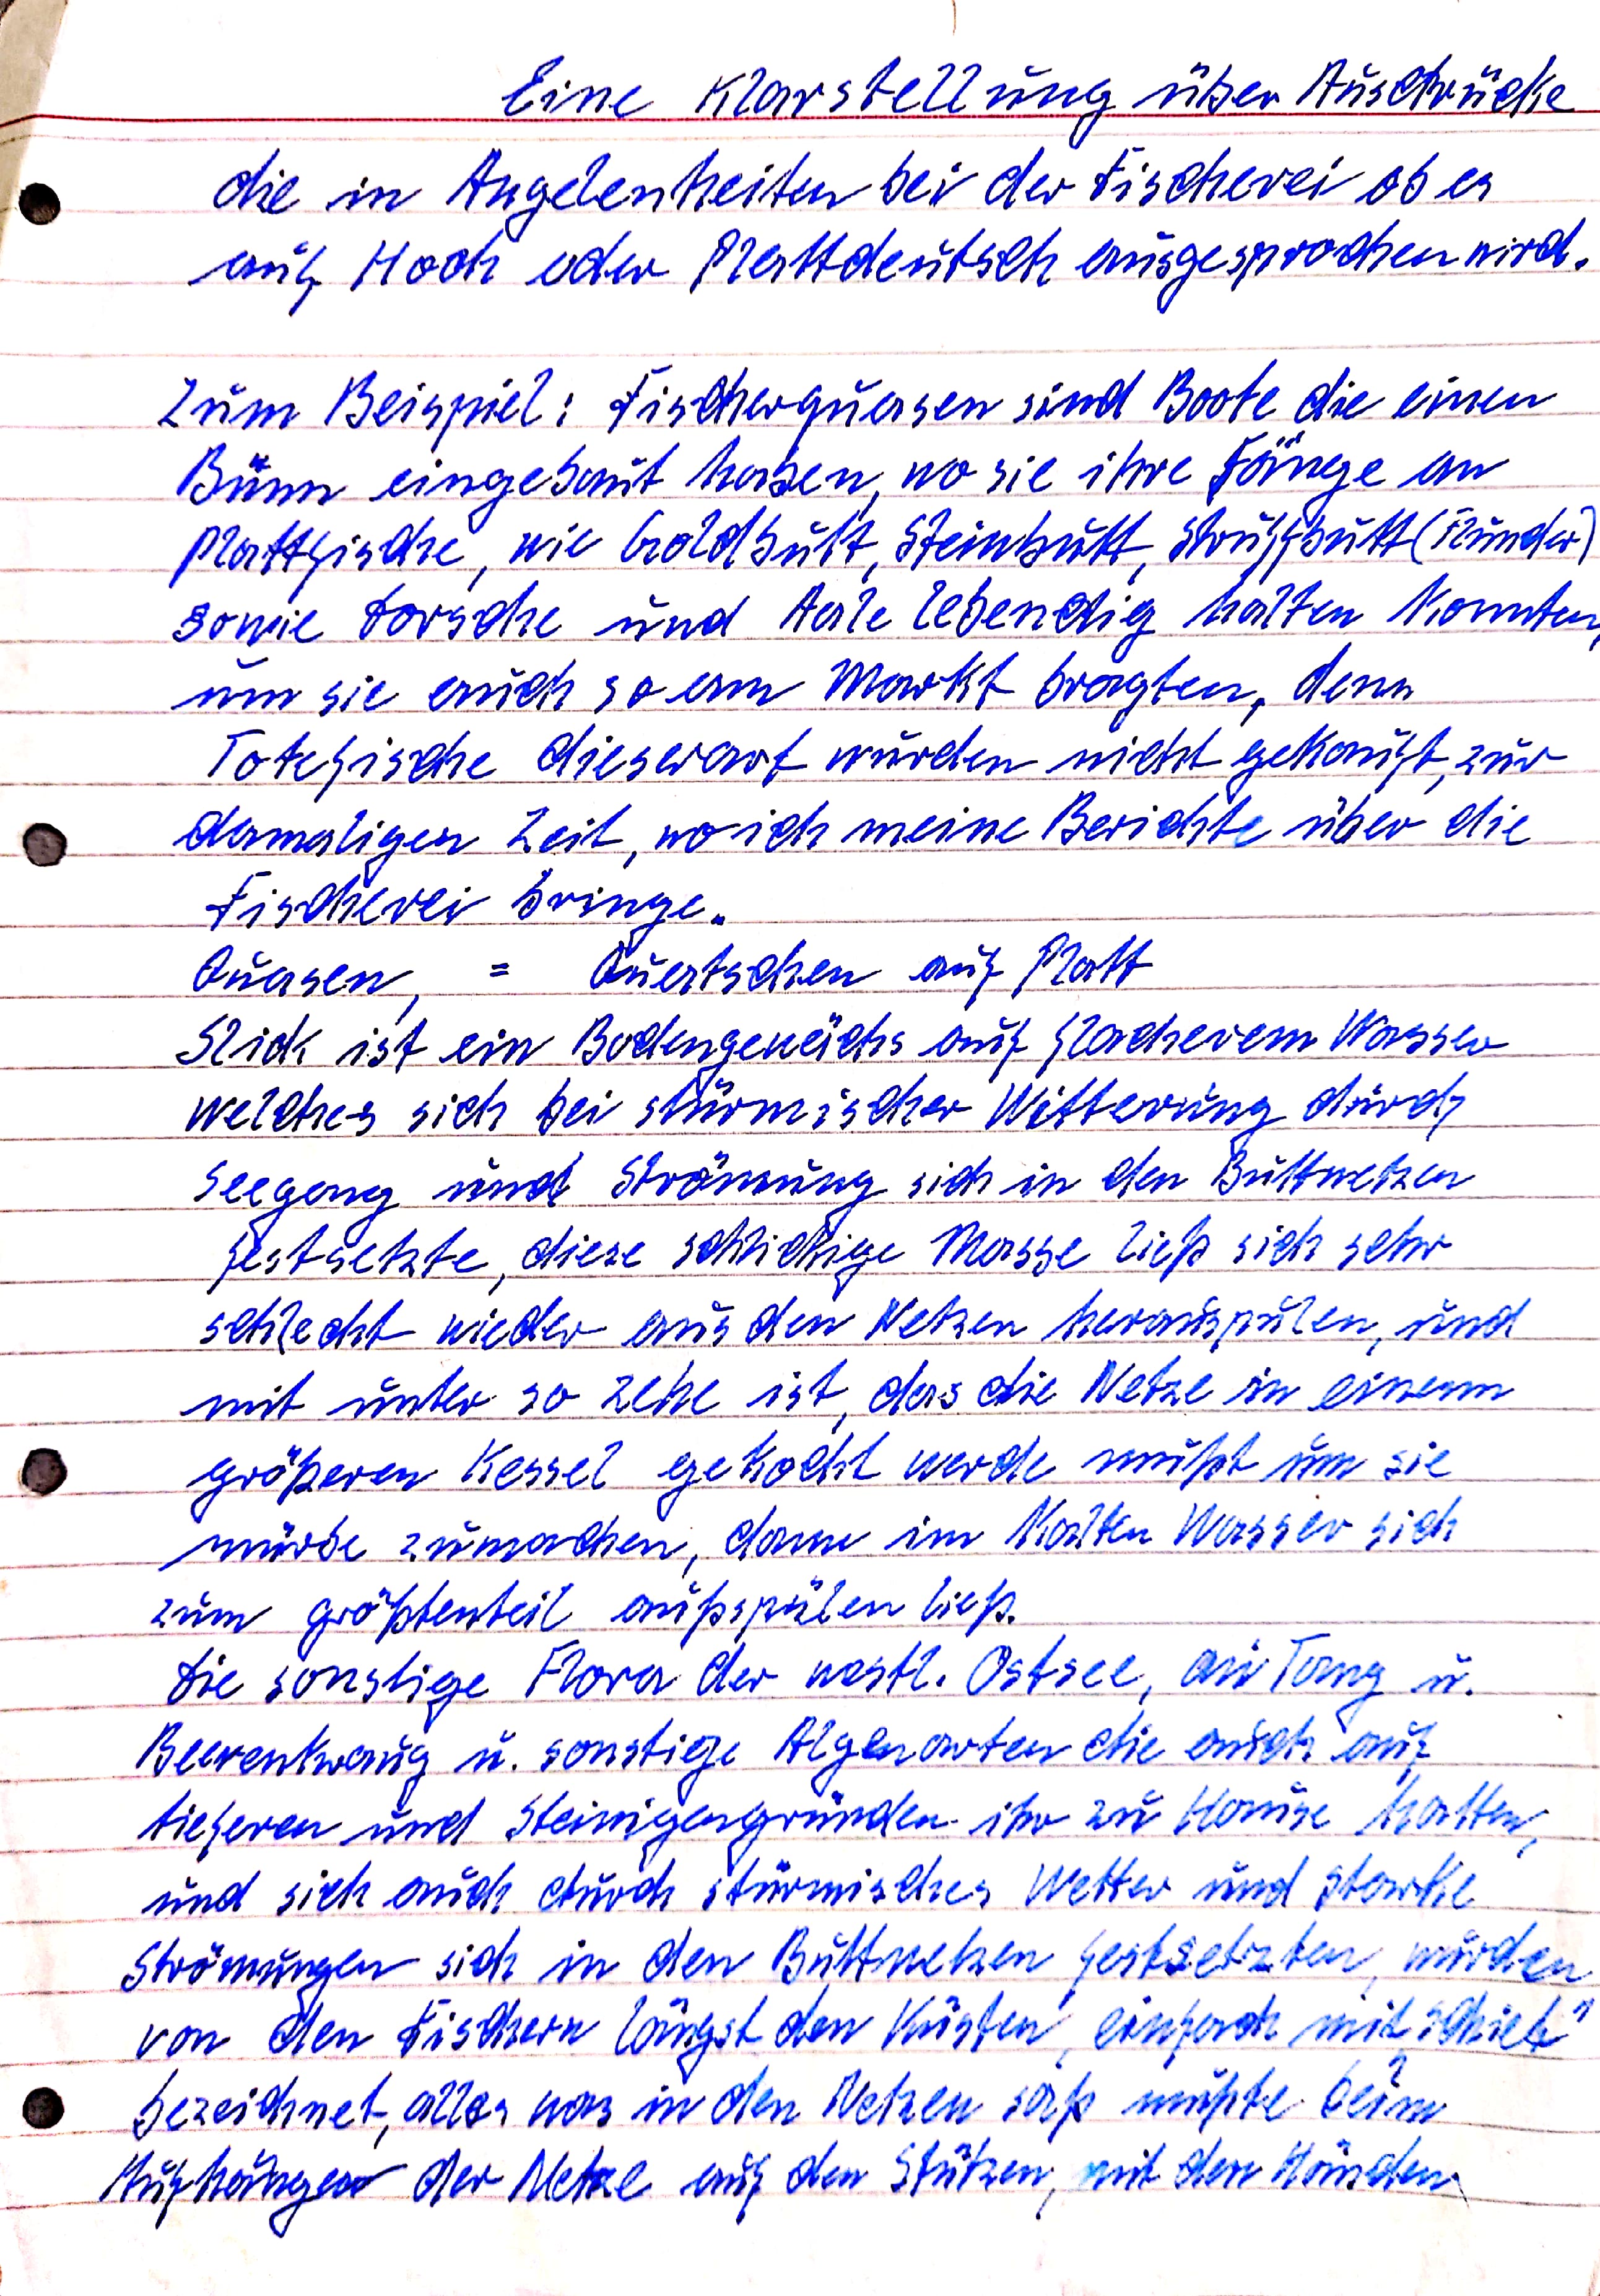 Eine Klarstellung über Ausdrücke
die in Angelenheiten bei der Fischerei ob es
auf Hoch oder Plattdeutsch ausgesprochen wird.
Zum Beispiel: Fischerquasen sind Boote die einen
Bünn eingebaut haben, wo sie ihre Fänge an
Plattfische, wie Goldbutt, Steinbutt, Struffbutt (Flunder)
sowie Dorsche und Aale lebendig halten konnten,
um sie auch so am Markt bragten, denn
Totefische dieserart wurden nicht gekauft, zur
damaligen Zeit, wo ich meine Berichte über die
Fischerei bringe.
Quasen, = Quatschen auf Platt
Slick ist ein Bodengewächs auf flacherem Wasser
welches sich bei stürmischer Witterung durch
Seegang und Strömung sich in den Buttnetzen
festsetzte, diese schlickige Masse ließ sich sehr
schlecht wieder aus den Netzen herauspülen, und
mit unter so zehe ist, das die Netze in einem
größeren Kessel gekocht werde mußt um sie
mürbe zumachen, dann im kalten Wasser sich
zum größtenteil außspülen ließ.
Die sonstige Flora der westl. Ostsee, an Tang u.
Beerenkraug u. sonstige Algenarten die auch auf
tieferen und Steinigengründen ihr zu Hause hatten,
und sich auch durch stürmisches Wetter und starke
Strömungen sich in den Buttnetzen festsetzten, wurden
von den Fischern längst den Küsten, einfach mit "Schiet"
bezeichnet, alles was in den Netzen saß mußte beim
Aufhängen der Netze auf den Stützen, mit den Händen